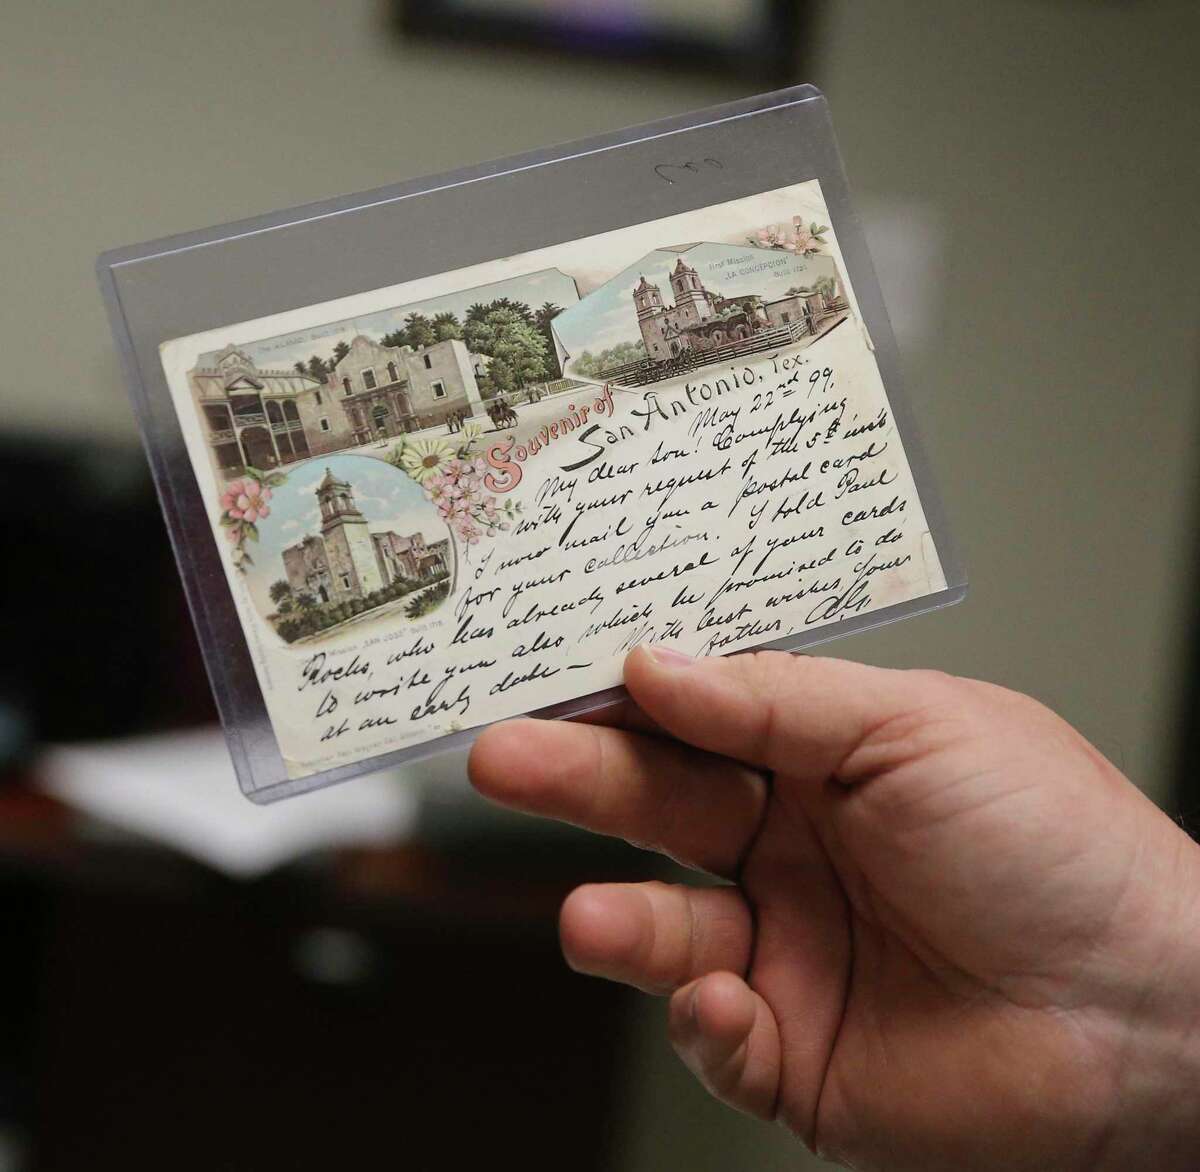 The ALAMO, Built 1718
First Mission
"LA CONCEPCION"
Built 1731
Souvenir of
San Antonio, Tex.
May 22nd 99.
My dear son! Complying,
with your request of the 5th inst
I now mail you a postal card
for your collection. I told Paul
Rochs, who has already several of your cards
to write you also, which he promised to do
at an early date — With best wishes, Your
father,
Mission "SAN JOSE" Built 1718